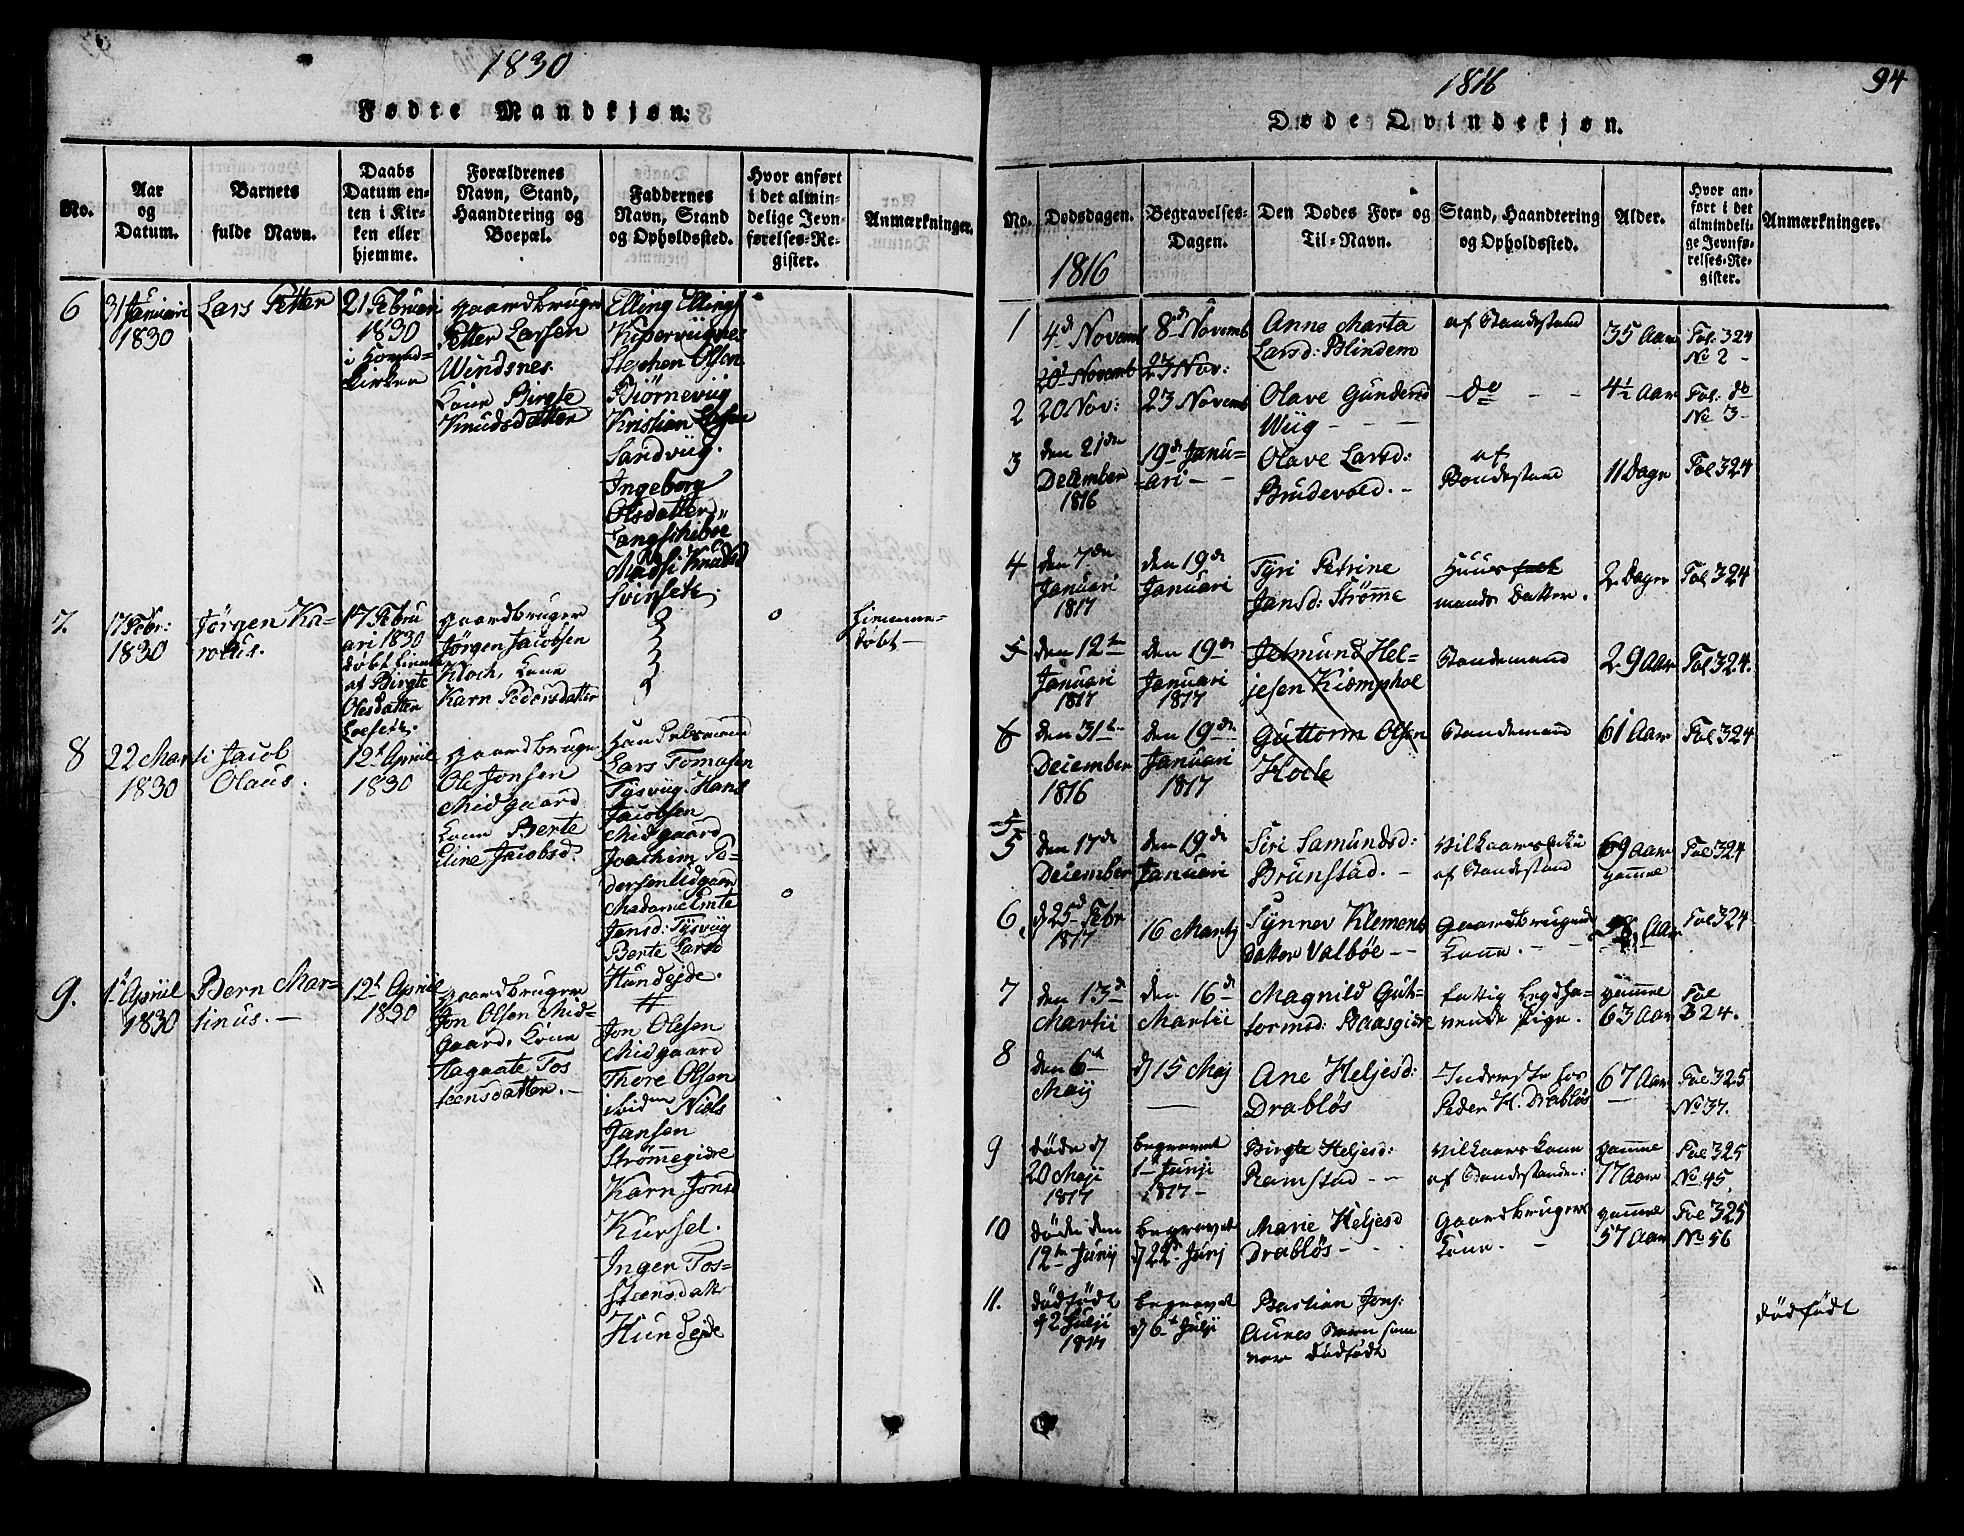 1830
Fødte Mandkjøn.
No.
Aar
og
Datum.
Barnets
fulde Navn.
Daabs
Datum en-
ten i Kir-
ken eller
hjemme.
Forældrenes
Navn, Stand,
Haandtering og
Boepæl.
Faddernes
Navn, Stand
og Opholdssted.
Hvor anført
i det almin-
delige Jevn-
førelses-Re-
gister.
Anmærkninger.
6
31 Januari
1830
Lars Petter
21 Februari
1830
i Hoved-
kirken
gaardbruger
Petter Larsen
Windsnes.
Kone Birgte
Knudsdatter
Elling Ellings
Kipervügnes
Stephen Olsen
Biörnevüg
Kristian Olsen
Sandvüg.
Ingeborg
Olsdatter
Langschiboe
Madsi Knudsd
Svinset.
7.
17 Febr:
1830
Jørgen Ka-
rolus.
17 Febru
ari 1830
döbt hiemme
af Birgte
Olesdatter
gaardbruger
Jörgen Jacobsen
Kloch, Kone
Karn Pedersdatter
o
hiemme-
döbt
8
22 Marti
1830
Jacob
Olaus.
12t Apriil
1830
gaardbruger
Ole Jonsen
Midgaard
Kone Berte
Eline Jacobsd.
Handelsmand
Lars Tomasen
Tysvüg. Hans
Jacobsen
Midgaard
Joachim Pe-
dersen Udgaard
Madame Emte
Jensd: Tysvüg
Berte Larsd
Hundejde.
o
9.
1t Apriil
1830
Bern Mar-
tinus. —
12t Apriil
1830
gaardbruger
Jon Olsen Mid-
gaard. Kone
Hagaate Tos
teensdatter. —
Jon Olesen
Midgaard
Thore Olsen
ibidem Niels
Jansen
Strömmegiere
Karn Jonsd
Kursel.
Inger Tos-
steensdatt
Hundejde
1816
94
Døde Qvindekjøn.
No.
Dødsdagen.
1816
Begravelses-
Dagen.
Den Dødes For- og
Til-Navn.
Stand, Haandtering
og Opholdssted.
Alder.
Hvor an-
ført i det
almindeli-
ge Jevnfø-
relses-Re-
gister.
Anmærkninger.
1
4d Novemb
8de Novemb
Anne Marta
Larsd: Blindem
af Bondestand
35 Aar
Fol. 324
No 2 -
20d Novemb
23 Nov:
2
20 Nov:
23 Novemb
Olave Gundersd
Wiig - - -
do - -
4½ Aar
Fol. do
No 3 -
3
den 21de
December
1816
19de Janu-
ari - -
Olave Larsd:
Brudevold. -
af
Bondestand
11 Dage
Fol 324
4
den 7de
Januari
1817
den 19de
Januari
Tyri Petrine
Jansd: Strømme
Huus
mands Datter.
2 Dage
Fol 324
5
den 12te
Januari
1817
den 19de
Januari
1817
Jetmund Hel-
jesen Kiemphol
Bondemand
29 Aar
Fol 324.
6
den 31te
December
1816
den 19de
Januari
1817
Guttorm Olsen
Hole
Bondemand
61 Aar
Fol 324
5
den 17de
December
den 19de
Januari
Siri Samundsd:
Brunstad. -
af Bondestand
69 Aar
gamel
Fol 324
6,
d 25d Febr
1817
16 Martj
Synnev Klements
datter Valböe -
Gaardbrugende
Kone. -
58 Aar
Fol 324
7
den 13d
Martii
den 16d
Martii
Magnild Gut-
tormsd: Baasgiere
fattig Legdha-
vende Pige.
gammel
63 Aar
Fol
324.
8
den 6te
Maij
d 15 Maj
Ane Heljesd:
Drabløs
Inderste hos
Peder H. Drabløs
67 Aar
Fol 325
No 37.
9
døde d
20 Maji
1817
begravet
1 Junji
1817 -
Birgte Heljesd:
Ramstad - -
Vilkaars Kone
af Bondestanden:
gammel
77 Aar
Fol 325
No 45
10
døde den
12te Junij
begravet
d 22d Junj
Marie Heljesd
Drabløs - -
Gaardbrugers
Kone. -
gammel
57 Aar
Fol 325
No 56
11.
dødfødt
d 2 Julji
1817
begravet
d 6te Julji
Bastian Jons:
Aures Barn som
var dødfødt
dødfødt